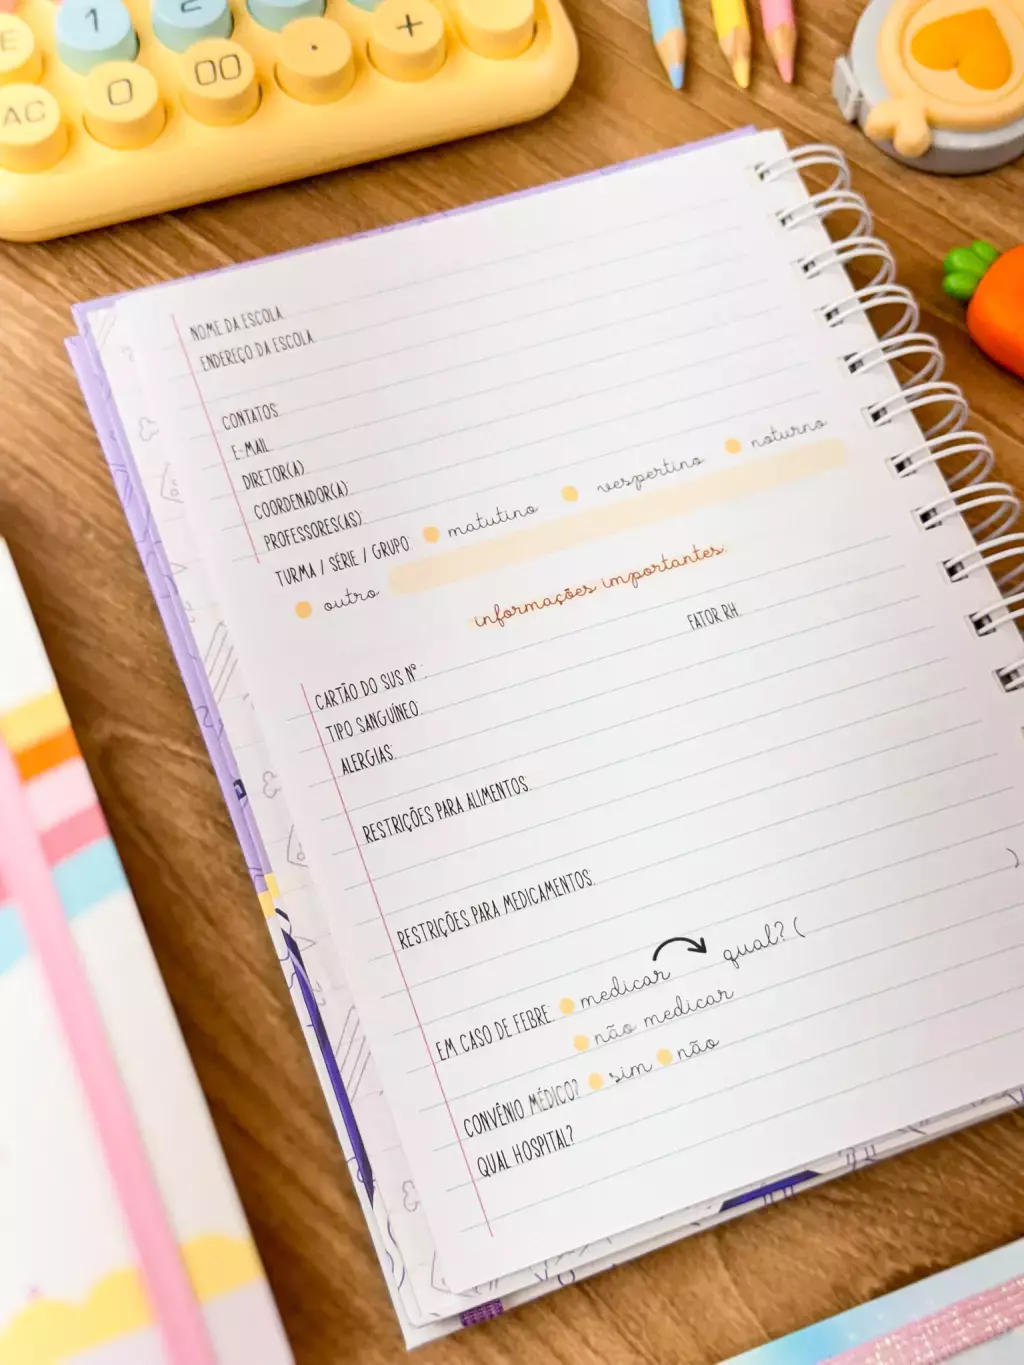 E
1
AC
0
00
.
+
NOME DA ESCOLA:
ENDEREÇO DA ESCOLA:
CONTATOS:
E-MAIL:
DIRETOR(A):
COORDENADOR(A):
PROFESSORES(AS):
TURMA / SÉRIE / GRUPO: matutino vespertino noturno
outro
informações importantes:
CARTÃO DO SUS Nº:
TIPO SANGUÍNEO: FATOR RH:
ALERGIAS:
RESTRIÇÕES PARA ALIMENTOS:
RESTRIÇÕES PARA MEDICAMENTOS:
EM CASO DE FEBRE: medicar qual? ( )
não medicar
CONVÊNIO MÉDICO? sim não
QUAL HOSPITAL?